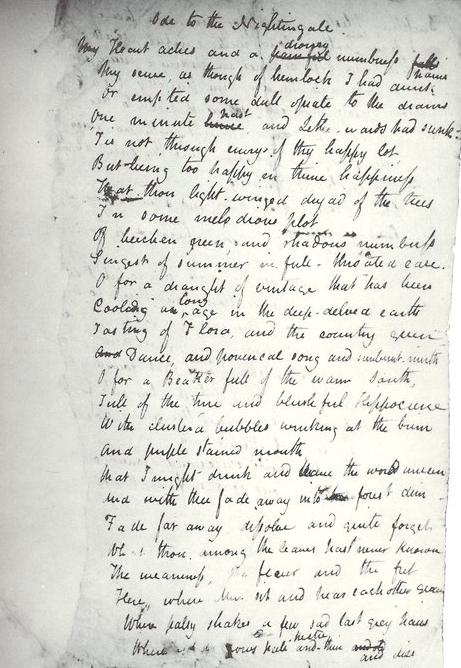 Ode to the Nightingale.
My Heart aches and a drowsy painful numbness falls pains
My sense, as though of hemlock I had drunk
Or emptied some dull opiate to the drains
One minute hence past and Lethe-wards had sunk.
'Tis not through envy of thy happy lot
But being too happy in thine happiness
That thou light-winged dryad of the trees
In some melodious plot
Of beechen green, and shadows numberless
Singest of summer in full-throated ease.
O for a draught of vintage that has been
Cooling an long age in the deep-delved earth
Tasting of Flora, and the country green
And Dance, and provencal song and sunburnt mirth
O for a Beaker full of the warm South,
Full of the true and blushful Hippocrene
With clustered bubbles winking at the brim
And purple stained mouth
That I might drink and leave the world unseen
And with thee fade away into forest dim -
Fade far away dissolve and quite forget
What thou among the leaves hast never known
The weariness, the fever and the fret
Here, where Men sit and hear each other groan
Where palsy shakes a few sad last grey hairs
Where grows pale and thin and dies